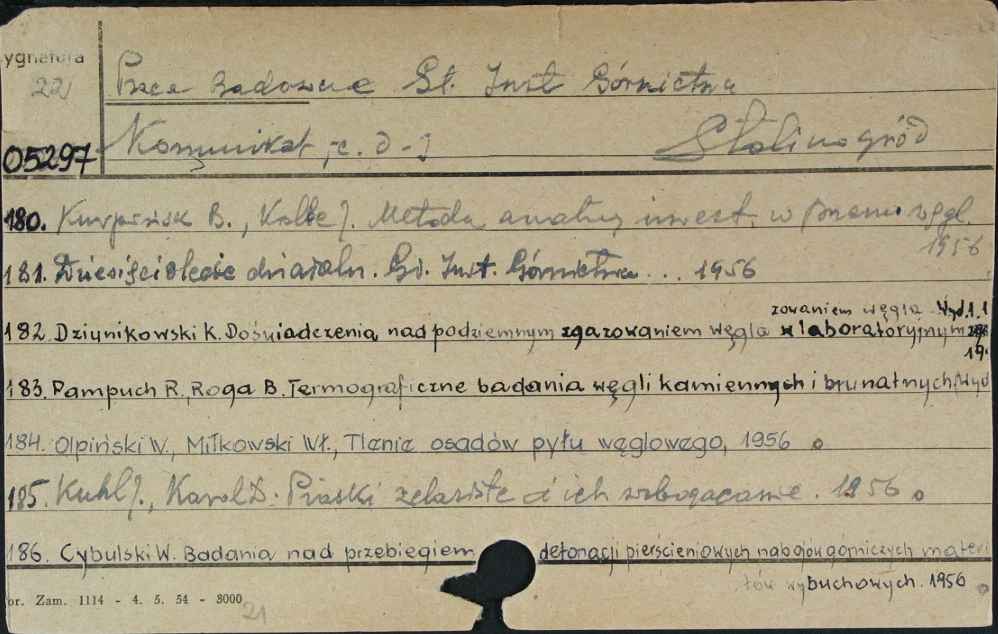 ygnatura
22
Prace Badawcze Gł. Inst Górnictwa
05297 Komunikat Stalinogród
180. Kurpisiak B., Kalbe J. Metoda inwest. w węgl.
1956
181. Dziesięciolecie działaln. Gł. Inst. Górnictwa... 1956
zowaniem węgla. Wyd. 1.1
182. Dziunikowski K. Doświadczenia nad podziemnym zgazowaniem węgla w laboratoryjnym
19.
183. Pampuch R., Roga B. Termograficzne badania węgli kamiennych i brunatnych, Wyd
184. Olpiński W., Miłkowski Wł., Tlenie osadów pyłu węglowego, 1956
185. Kuhl J., Karol D. Piaski żelaziste i ich wzbogacanie. 1956
186. Cybulski W. Badania nad przebiegiem detonacji pierścieniowych nabojów górniczych materi
łów wybuchowych. 1956
or. Zam. 1114 - 4. 5. 54 - 3000
21